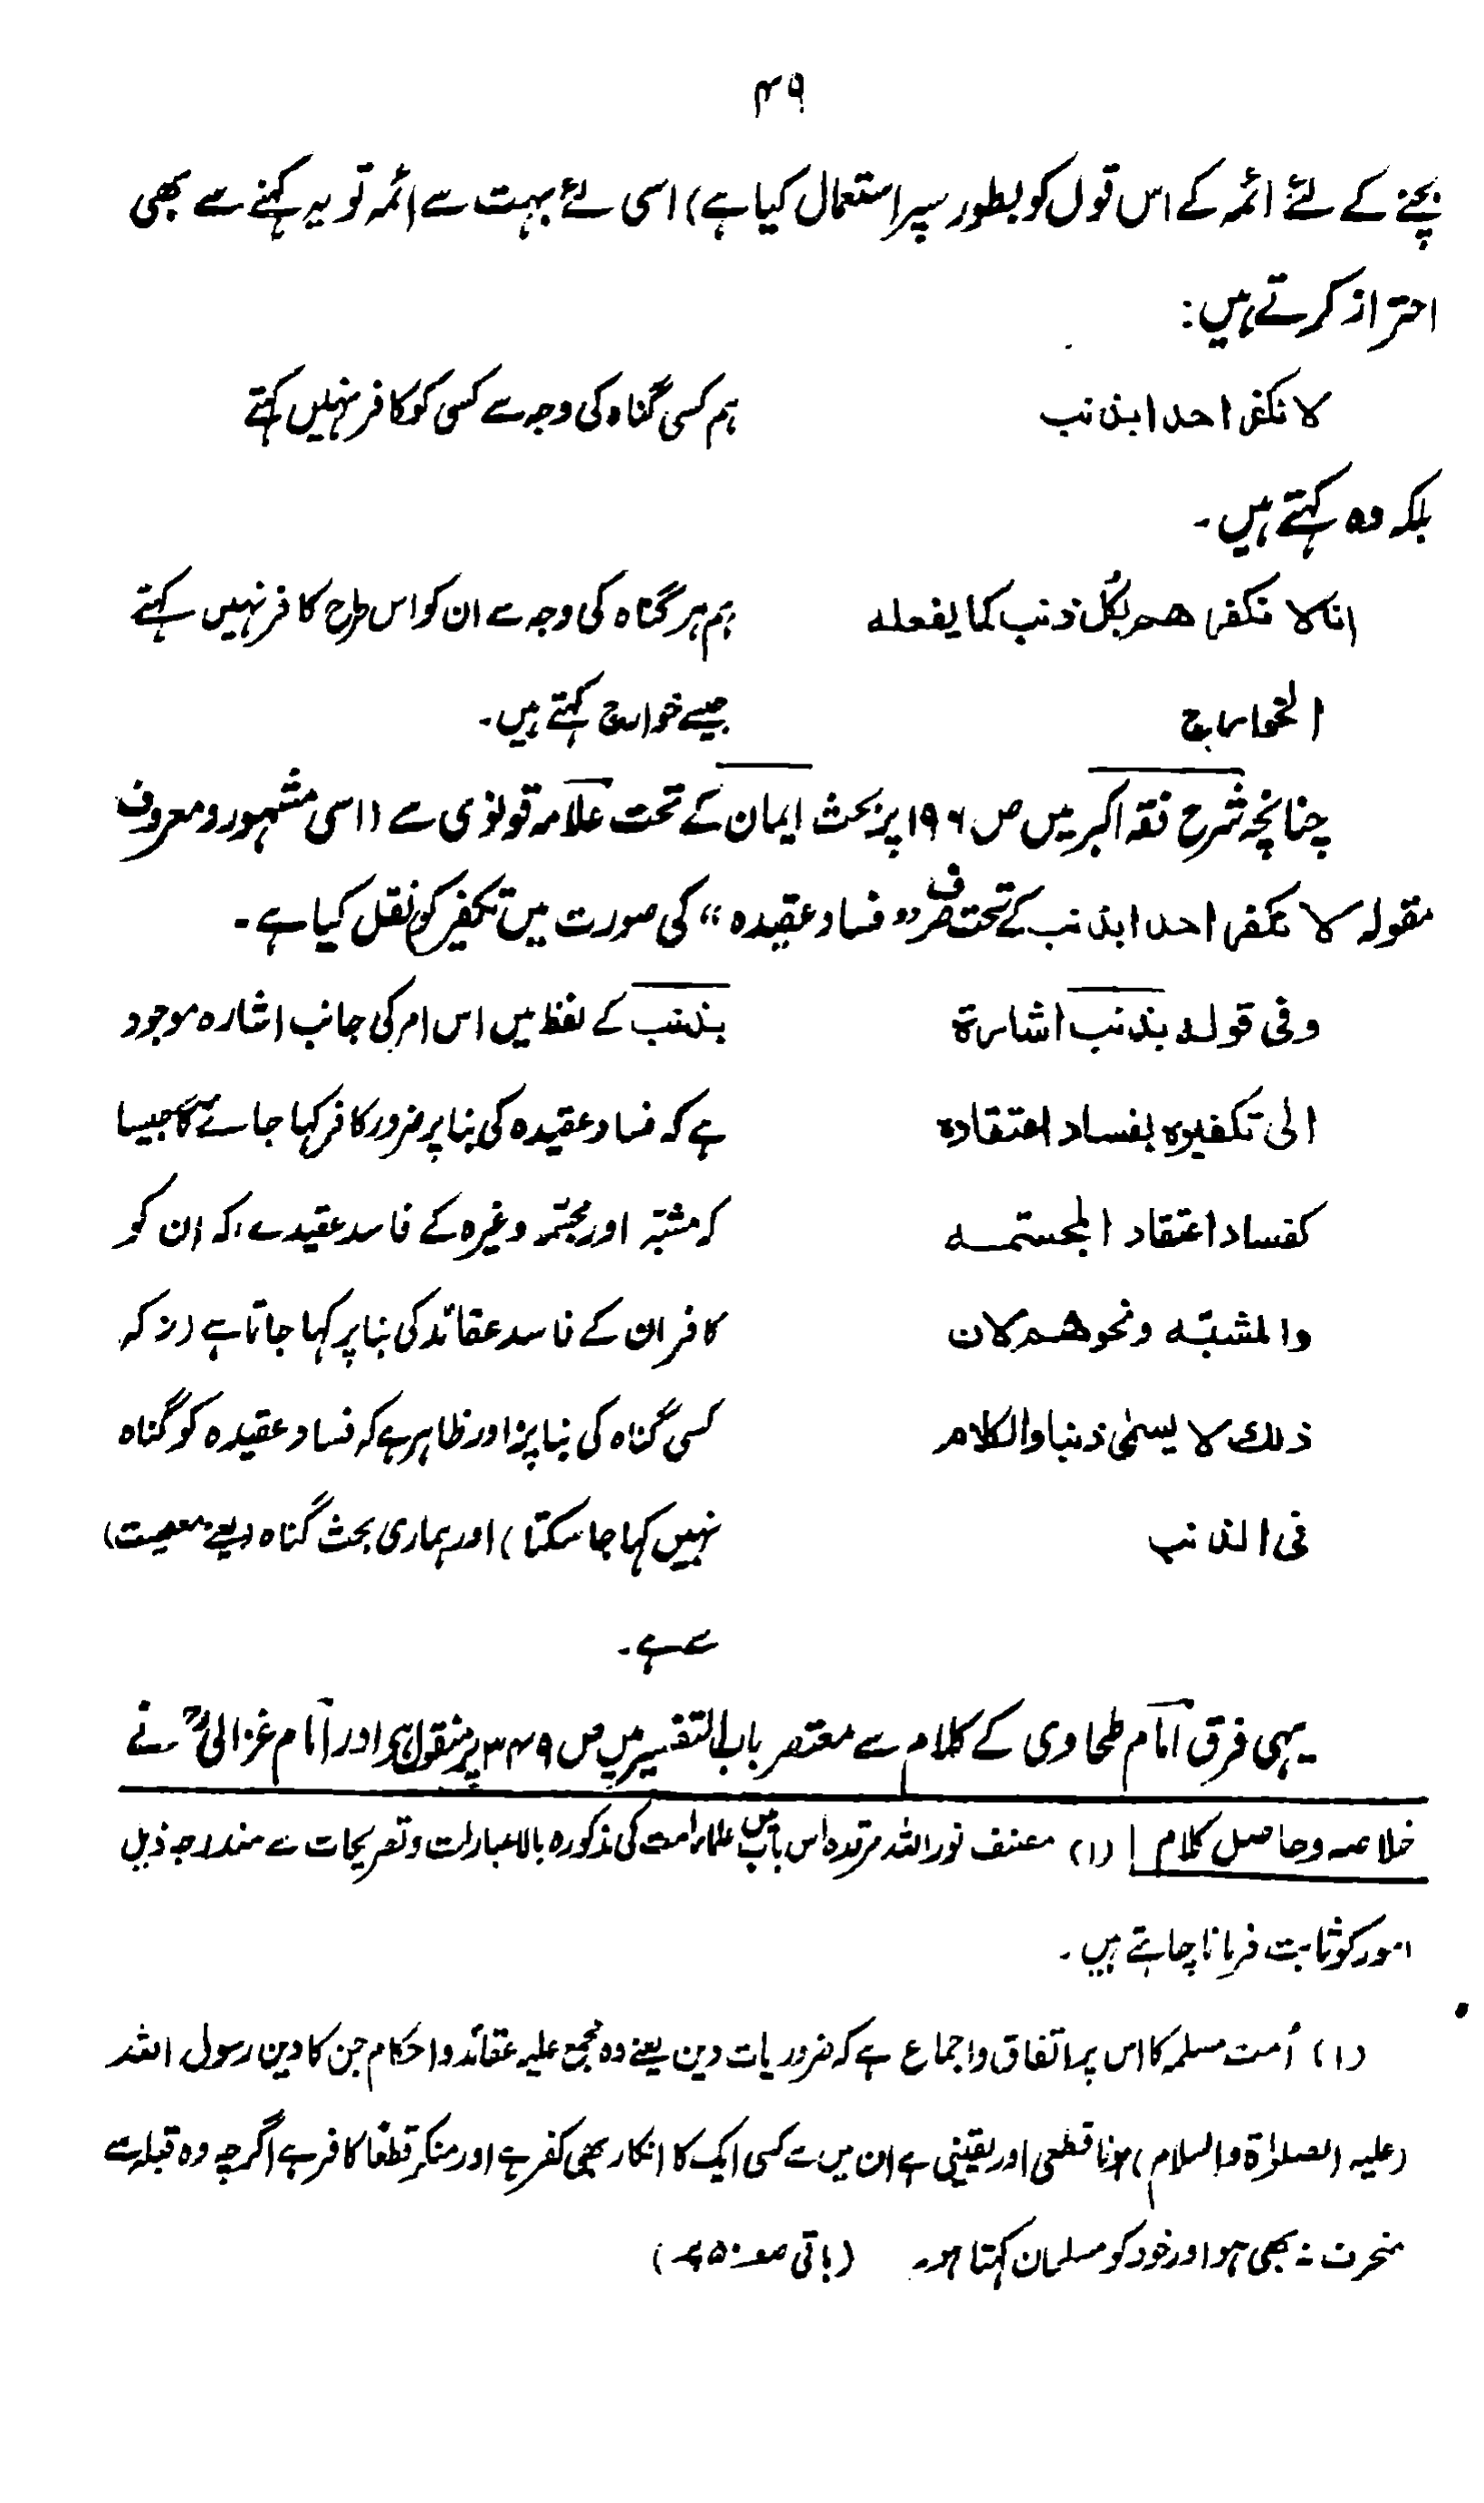 ۴۹
بچنے کے لئے ائمہ کے اس قول کو بطور سپر استعمال کیا ہے) اسی لئے بہت سے ائمہ تو یہ کہنے سے بھی
احتراز کرتے ہیں:
لا نکفر احدا بذنب ہم کسی گناہ کی وجہ سے کسی کو کافر نہیں کہتے
بلکہ وہ کہتے ہیں۔
انا لا نکفرهم بکل ذنب کما یفعله ہم ہر گناہ کی وجہ سے ان کو اس طرح کافر نہیں کہتے
الخوارج جیسے خوارج کہتے ہیں۔
چنانچہ شرح فقہ اکبر میں ص ۱۹۶ پر بحث ایمان کے تحت علامہ قونوی سے (اسی مشہور و معروف
مقولہ لا نکفر احدا بذنب کے تحت صرف ”فساد عقیدہ“ کی صورت میں تکفیر کو نقل کیا ہے۔
وفی قوله بذنب اشارة بذنب کے لفظ میں اس امر کی جانب اشارہ موجود
الی تکفیره بفساد اعتقاده ہے کہ فساد عقیدہ کی بنا پر ضرور کافر کہا جائے گا جیسا
کفساد اعتقاد المجسمه کہ مشبہ اور مجسمہ وغیرہ کے فاسد عقیدے، کہ ان کو
والمشبّه ونحوهم لان کافر ان کے فاسد عقائد کی بنا پر کہا جاتا ہے (نہ کہ
ذلک لا یسمیٰ ذنبا والکلام کسی گناہ کی بنا پر اور ظاہر ہے کہ فساد عقیدہ کو گناہ
فی الذنب نہیں کہا جا سکتا) اور ہماری بحث گناہ (یعنی معصیت)
سے ہے۔
یہی فرق امام طحاوی کے کلام سے معتصر باب التفسیر میں ص ۳۴۹ پر منقول ہے اور امام غزالیؒ نے
خلاصہ و حاصل کلام (۱) مصنف نور اللہ مرقدہ اس باب میں علماء امت کی مذکورہ بالا عبارات و تصریحات سے مندرجہ ذیل
امور کو ثابت فرمانا چاہتے ہیں۔
(۱) اُمت مسلمہ کا اس پر اتفاق و اجماع ہے کہ ضروریات دین یعنے وہ مجمع علیہ عقائد و احکام جن کا دین رسول اللہ
(علیہ الصلوٰۃ والسلام) ہونا قطعی اور یقینی ہے ان میں سے کسی ایک کا انکار بھی کفر ہے اور منکر قطعًا کافر ہے اگرچہ وہ قبلہ سے
منحرف نہ بھی ہو اور خود کو مسلمان کہتا ہو۔ (باقی